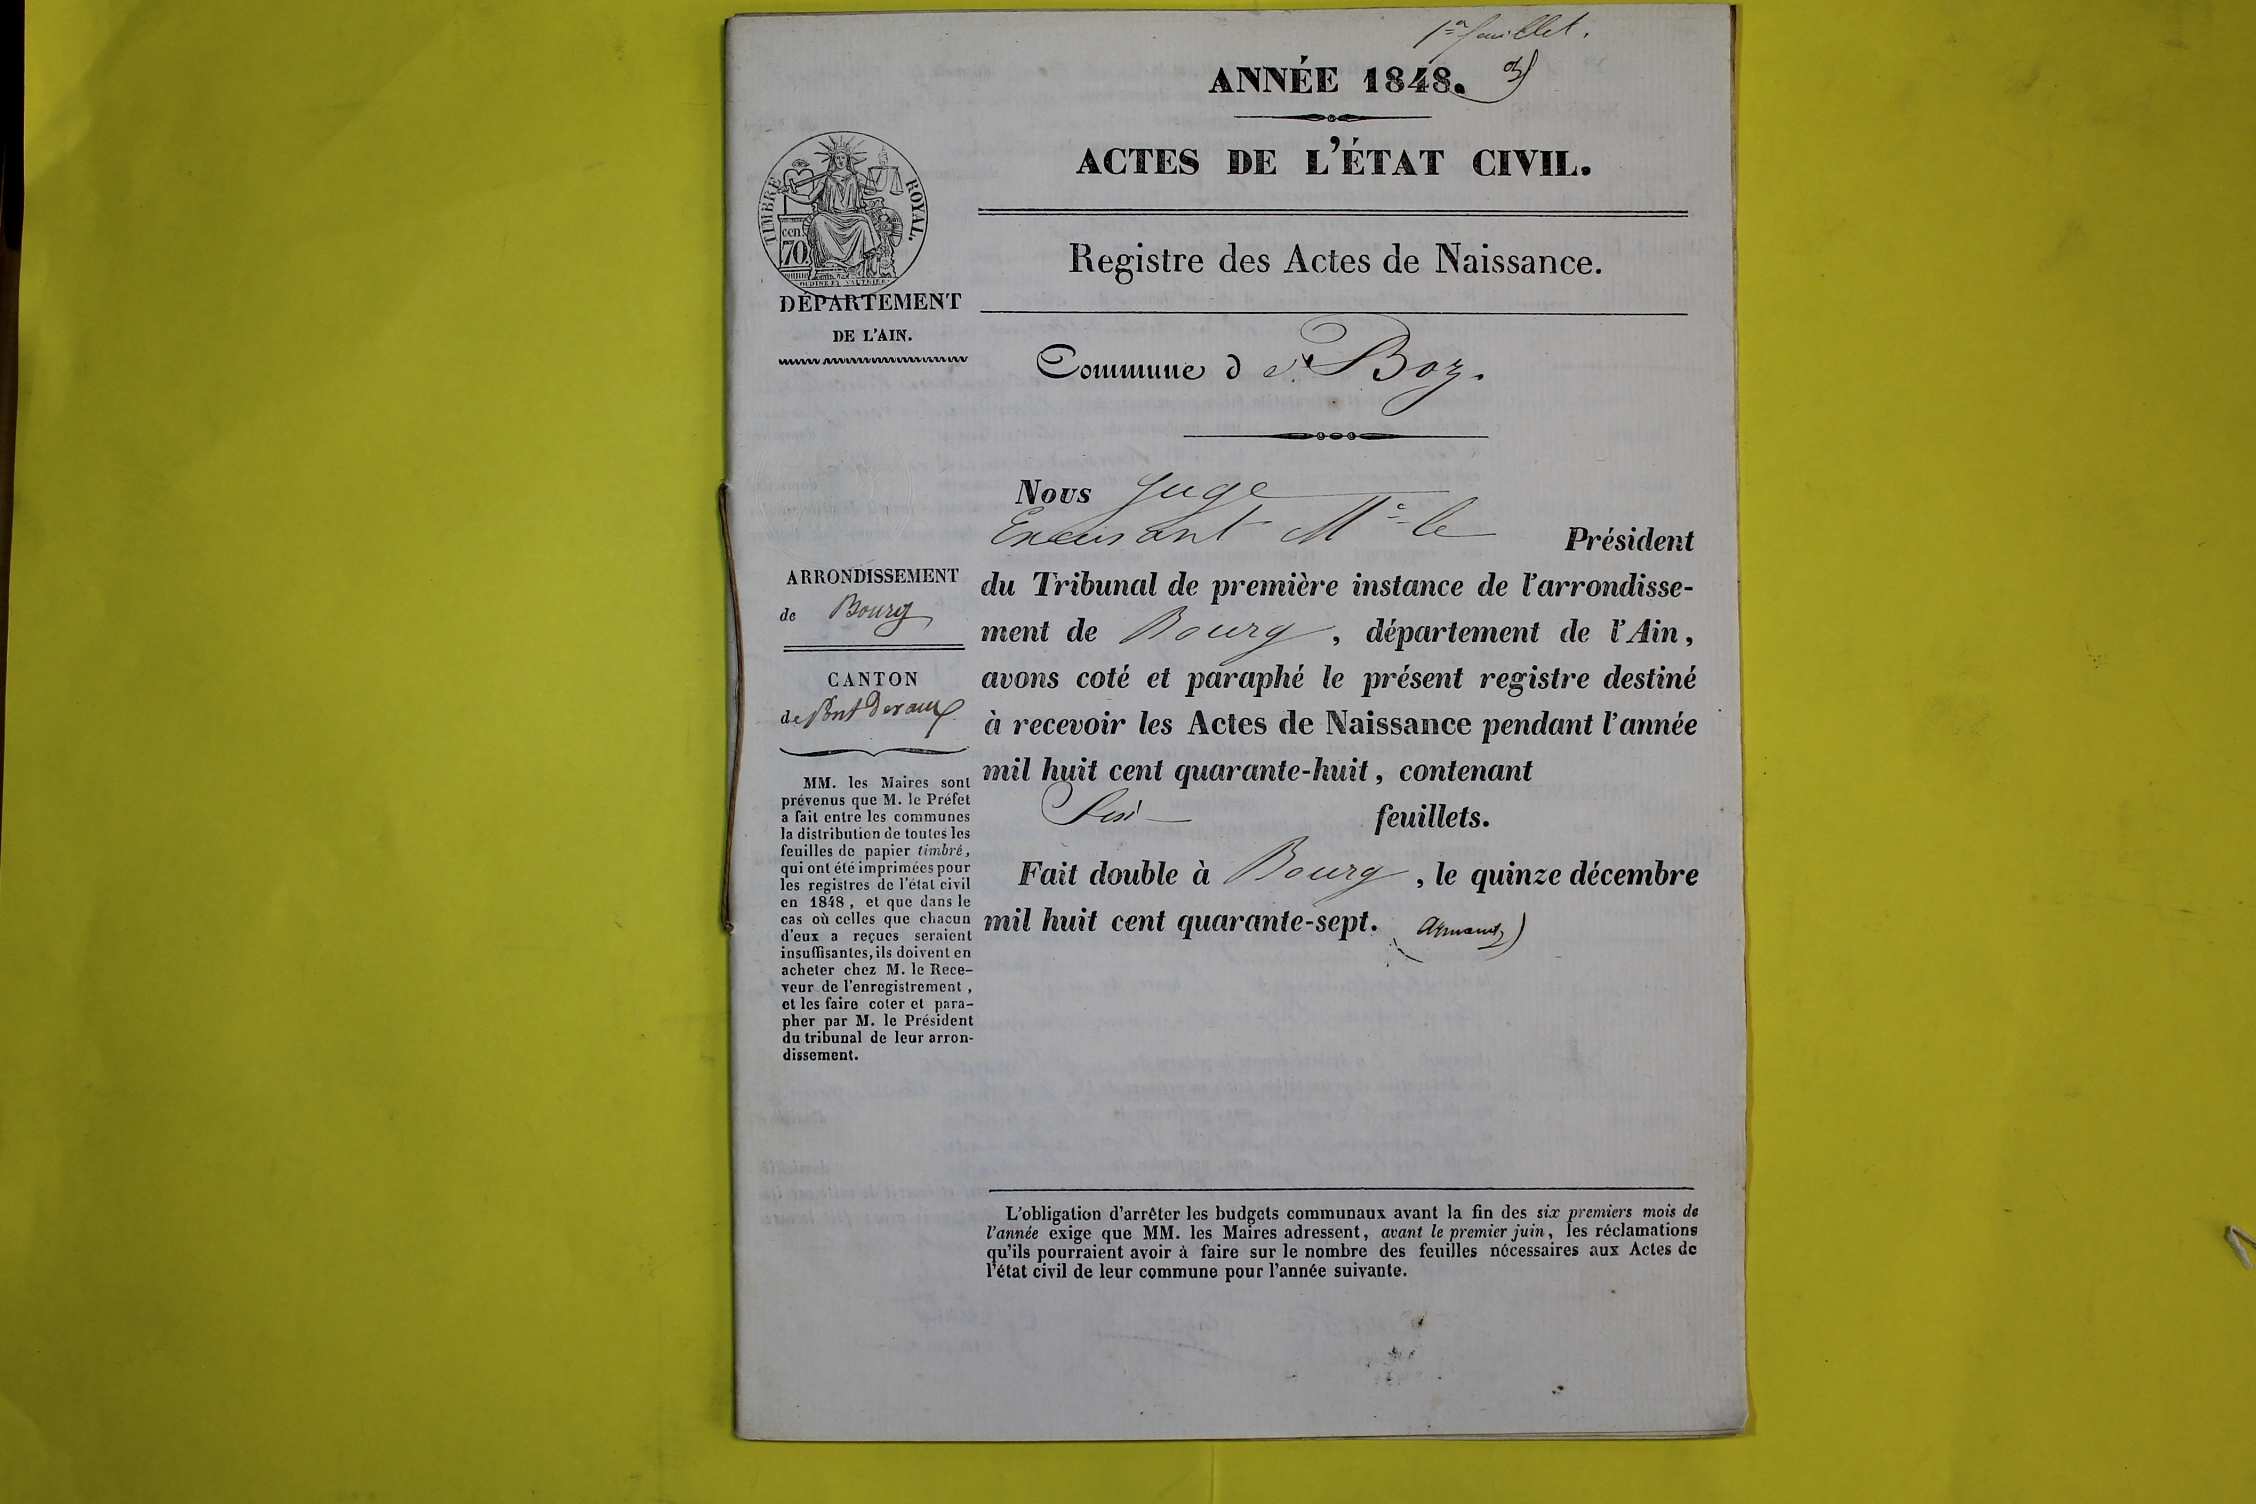 1er feuillet.
ANNÉE 1848.
ACTES DE L'ÉTAT CIVIL.
Registre des Actes de Naissance.
TIMBRE ROYAL.
cen.
70.
DÉPARTEMENT
DE L'AIN.
Commune de Boz.
Nous Juge
Excusant Mr le Président
du Tribunal de première instance de l'arrondisse-
ment de Bourg, département de l'Ain,
avons coté et paraphé le présent registre destiné
à recevoir les Actes de Naissance pendant l'année
mil huit cent quarante-huit, contenant
Six feuillets.
Fait double à Bourg, le quinze décembre
mil huit cent quarante-sept.
ARRONDISSEMENT
de Bourg
CANTON
de Pont Devaux
MM. les Maires sont
prévenus que M. le Préfet
a fait entre les communes
la distribution de toutes les
feuilles de papier timbré,
qui ont été imprimées pour
les registres de l'état civil
en 1848, et que dans le
cas où celles que chacun
d'eux a reçues seraient
insuffisantes, ils doivent en
acheter chez M. le Rece-
veur de l'enregistrement,
et les faire coter et para-
pher par M. le Président
du tribunal de leur arron-
dissement.
L'obligation d'arrêter les budgets communaux avant la fin des six premiers mois de
l'année exige que MM. les Maires adressent, avant le premier juin, les réclamations
qu'ils pourraient avoir à faire sur le nombre des feuilles nécessaires aux Actes de
l'état civil de leur commune pour l'année suivante.